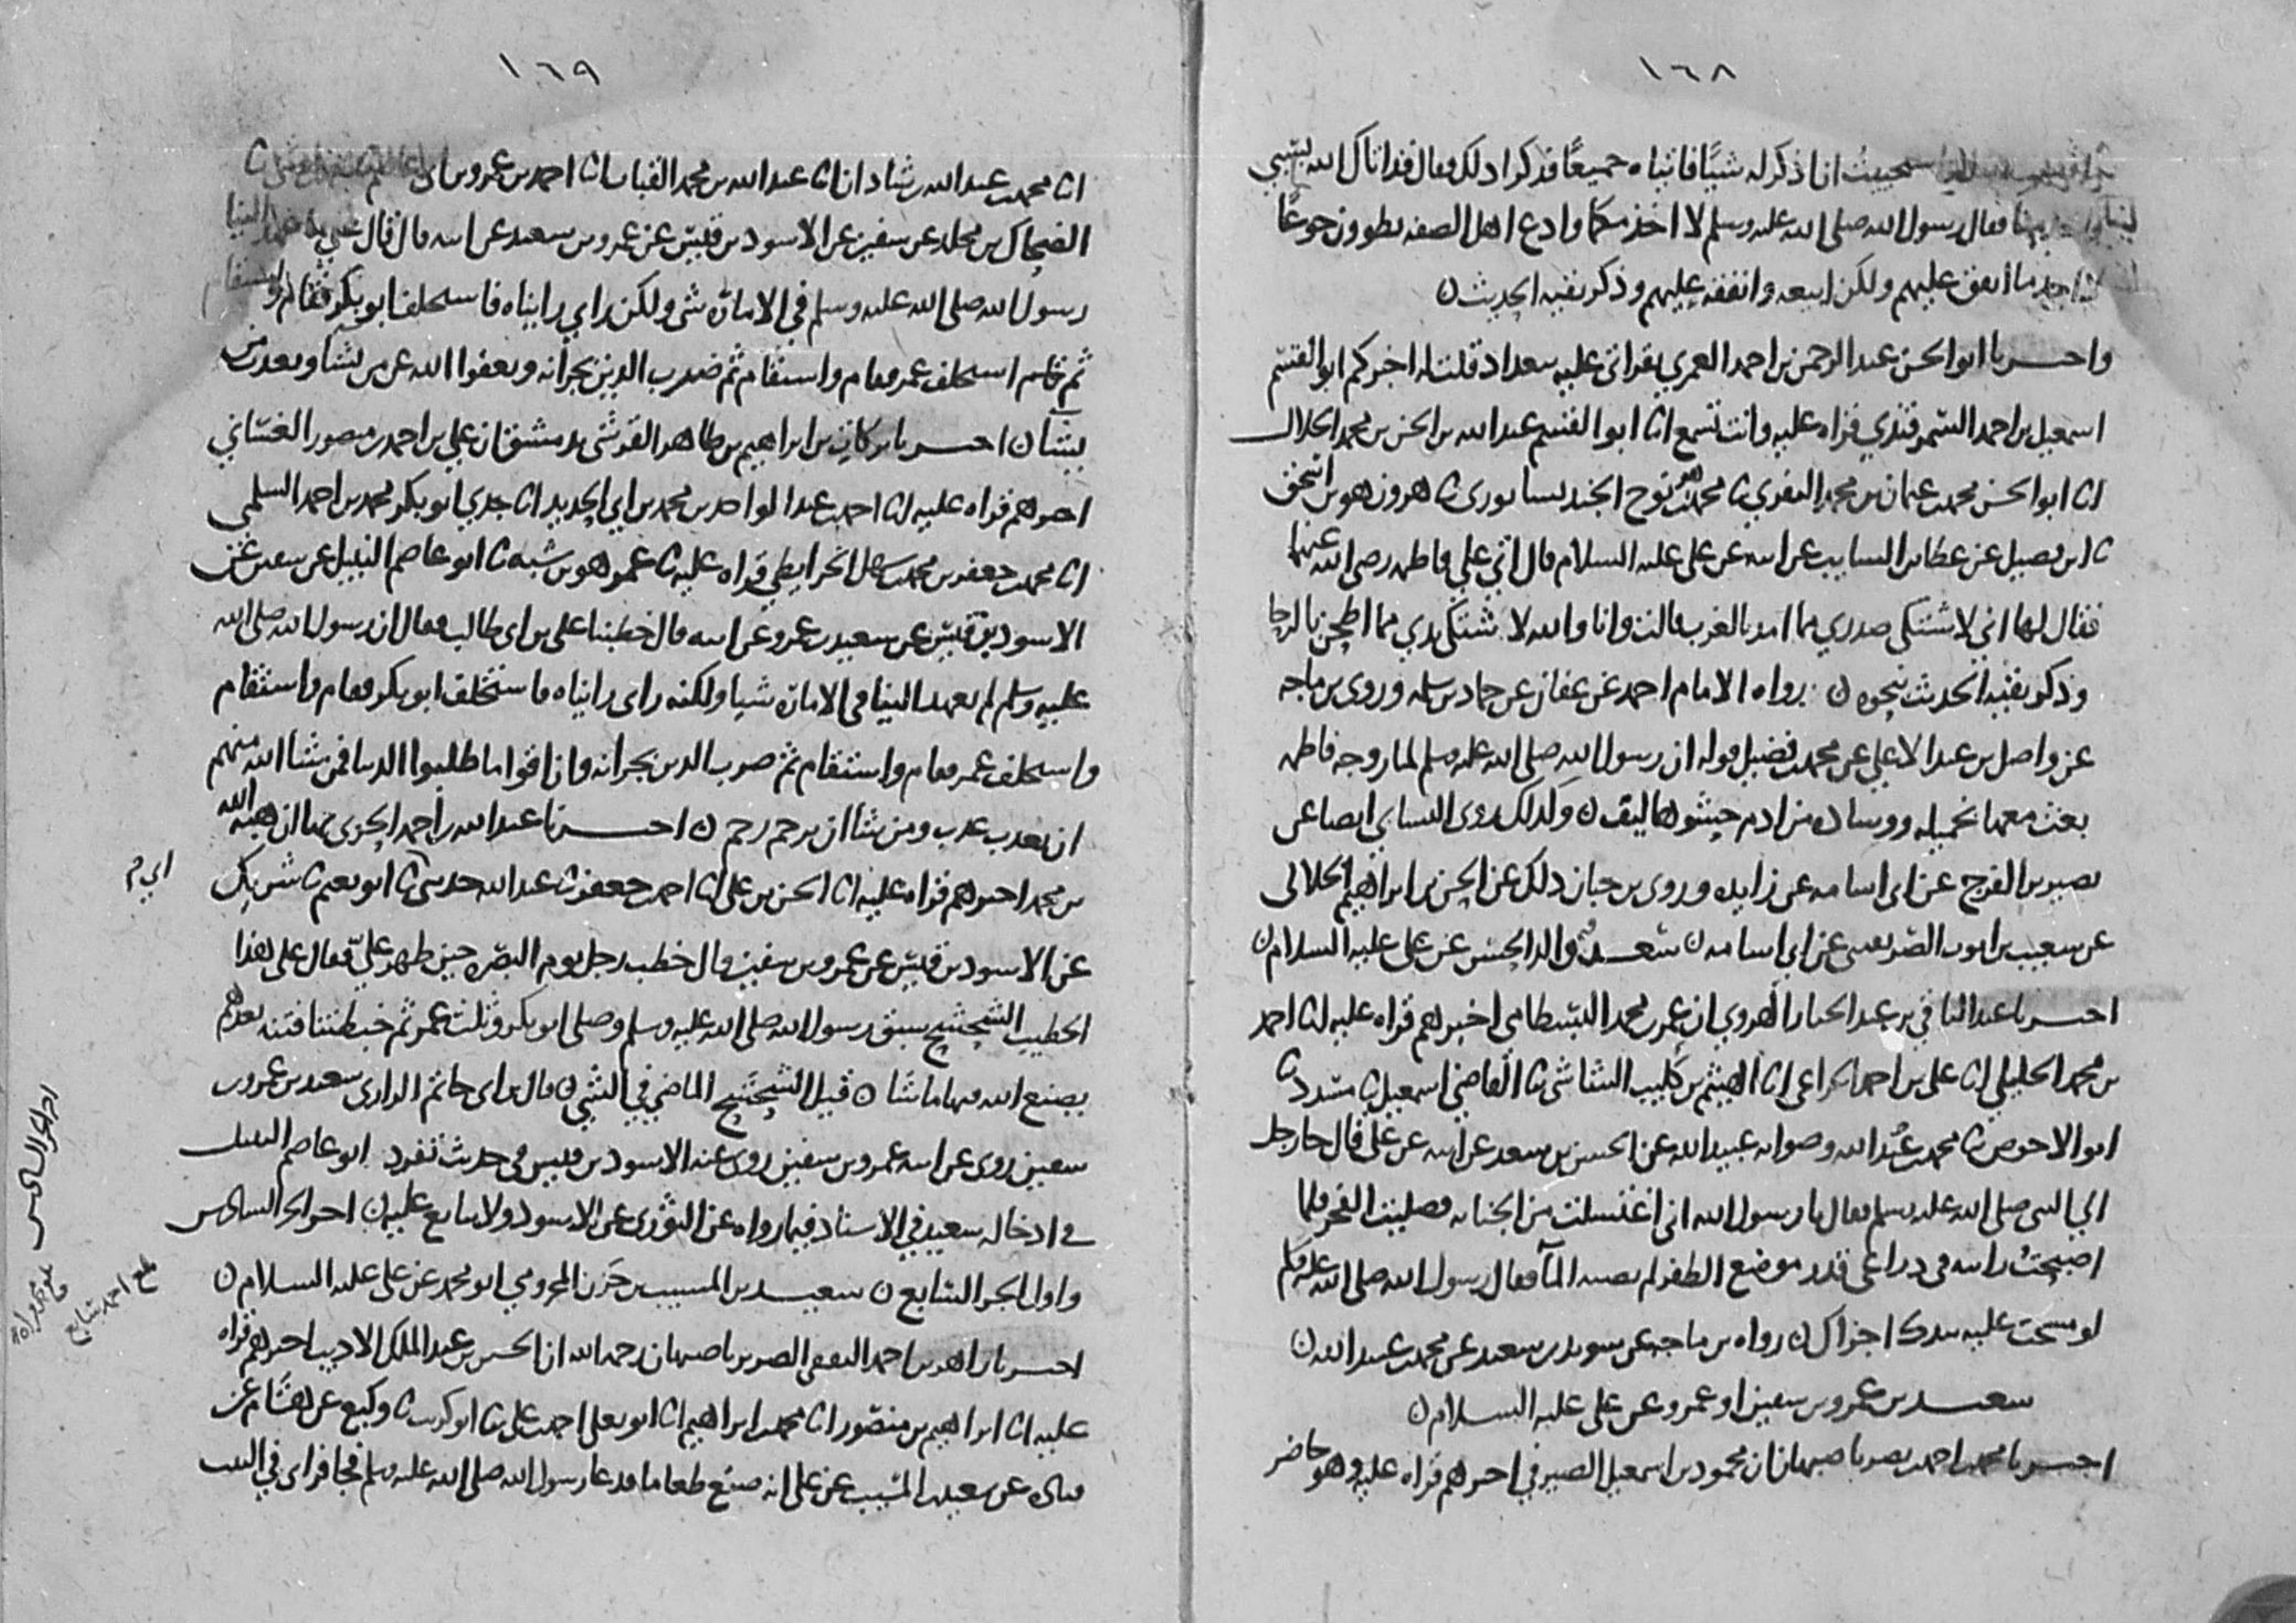 ١٦٨
انا ذكر له شيًا فاتياه جميعًا فذكرا ذلك فقال قد اتاك الله بسبي
فقال رسول الله صلى الله عليه وسلم لا اخذمكما وادع اهل الصفه تطوون جوعًا
اجد ما انفق عليهم ولكن ابيعه وانفقه عليهم وذكر بقيه الحديث ن
واخبرنا ابو الحسن عبد الرحمن بن احمد العمري بقراتي عليه ببغداد قلت له اخبركم ابو القسم
اسمعيل بن احمد السمرقندي قراه عليه وانت تسمع انا ابو القسم عبد الله بن الحسن بن محمد الخلال
انا ابو الحسن محمد بن عثمان بن محمد النفري نا محمد بن نوح الجنديسابوري نا هرون هو بن اسحق
نا ابن فضيل عن عطا بن السايب عن ابيه عن علي عليه السلام قال اتى علي فاطمه رضي الله عنهما
فقال لها اني لاشتكي صدري مما امد بالغرب قالت وانا والله لاشتكي يدي مما اطحن بالرحا
وذكر بقيه الحديث بنحوه ن رواه الامام احمد عن عفان عن حماد بن سلمه وروى بن ماجه
عن واصل بن عبد الاعلى عن محمد بن فضيل قوله ان رسول الله صلى الله عليه وسلم لما زوجه فاطمه
بعث معها بخميله ووساده من ادم حشوها ليف ن وكذلك روى النسائي ايضا عن
نصير بن الفرج عن ابي اسامه عن زايده وروى بن حبان ذلك عن الحسن بن ابراهيم الخلالي
عن شعيب بن ايوب الصريفيني عن ابي اسامه ن سعد والد الحسن عن علي عليه السلام ن
اخبرنا عبد الباقي بن عبد الجبار الهروي ان عمر بن محمد البسطامي اخبرهم قراه عليه انا احمد
بن محمد الخليلي انا علي بن احمد الخزاعي انا الهيثم بن كليب الشاشي نا القاضي اسمعيل نا مسدد نا
ابو الاحوص نا محمد بن عبد الله وصوابه عبيد الله عن الحسن بن سعد عن ابيه عن علي قال جا رجل
الى النبي صلى الله عليه وسلم فقال يا رسول الله اني اغتسلت من الجنابه فصليت الفجر فلما
اصبحتُ رايت في ذراعي قدر موضع الظفر لم يصبه المآ فقال رسول الله صلى الله عليه وسلم
لو مسحت عليه بيدك اجزاك ن رواه بن ماجه عن سويد بن سعيد عن محمد بن عبيد الله ن
سعيد بن عمرو بن سفين او عمرو عن علي عليه السلام ن
اخبرنا محمد بن احمد بن نصر باصبهان ان محمود بن اسمعيل الصيرفي اخبرهم قراه عليه وهو حاضر
١٦٩
انا محمد بن عبد الله بن شاذان انا عبد الله بن محمد القباب انا احمد بن عمرو بن ابي عاصم
الضحاك بن مخلد عن سفين عن الاسود بن قيس عن عمرو بن سعيد عن ابيه قال قال علي ما عهد الينا
رسول الله صلى الله عليه وسلم في الاماره شي ولكن راي رايناه فاستخلف ابو بكر فقام واستقام
ثم استخلف عمر فقام واستقام ثم ضرب الدين بجرانه ويعفوا الله عن من يشا ويعذب من
يشا ن اخبرنا بركات بن ابراهيم بن طاهر القرشي بدمشق ان علي بن احمد بن منصور الغساني
اخبرهم قراه عليه انا احمد بن عبد الواحد بن محمد بن ابي الحديد انا جدي ابو بكر محمد بن احمد السلمي
انا محمد بن جعفر بن محمد بن سهل الخرايطي قراه عليه نا عمر هو بن شبه نا ابو عاصم النبيل عن سفين عن
الاسود بن قيس عن سعيد بن عمرو عن ابيه قال خطبنا علي بن ابي طالب فقال ان رسول الله صلى الله
عليه وسلم لم يعهد الينا في الاماره شيا ولكنه راي رايناه فاستخلف ابو بكر فقام واستقام
واستخلف عمر فقام واستقام ثم ضرب الدين بجرانه وان اقواما طلبوا الدنيا فمن شا الله منهم
ان يعذب عذب ومن شا ان يرحم رحم ن اخبرنا عبد الله بن احمد الحربي بها ان هبه الله
بن محمد اخبرهم قراه عليه انا الحسن بن علي انا احمد بن جعفر نا عبد الله حدثني ابي نا ابو نعيم نا شريك
عن الاسود بن قيس عن عمرو بن سفين قال خطب رجل يوم البصره حين ظهر عليّ فقال علي هذا
الخطيب الشحشح سبق رسول الله صلى الله عليه وسلم وصلى ابو بكر وثلث عمر ثم خبطتنا فتنه بعدهم
يصنع الله فيها ما شا ن قيل الشحشح الماضي في الشي ن قال بن ابي حاتم الرازي سعيد بن عمرو بن
سفين روى عن ابيه عمرو بن سفين روى عنه الاسود بن قيس في حديث تفرد ابو عاصم النبيل
في ادخاله سعيد في الاسناد فيما رواه عن الثوري عن الاسود ولا يتابع عليه ن اخر الجز السادس
واول الجز السابع ن سعيد بن المسيب بن حزن المخزومي ابو محمد عن علي عليه السلام ن
اخبرنا زاهر بن احمد الثقفي الضرير باصبهان رحمه الله ان الحسين بن عبد الملك الاديب اخبرهم قراه
عليه انا ابراهيم بن منصور انا محمد بن ابراهيم انا ابو يعلى احمد بن علي نا ابو كريب نا وكيع عن هشام عن
قتاده عن سعيد بن المسيب عن علي انه صنع طعاما فدعا رسول الله صلى الله عليه وسلم فجا فراى في البيت
اخر الجز السادس